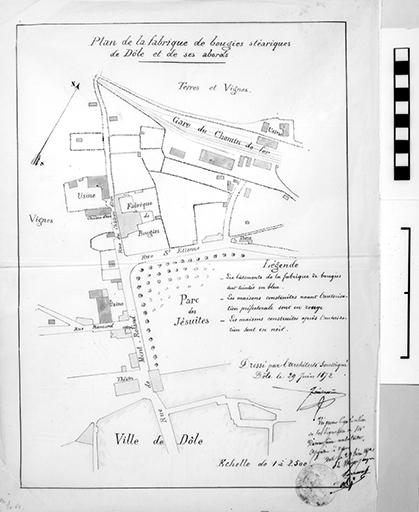 Plan de la fabrique de bougies stéariques
de Dôle et de ses abords
N
Terres et Vignes.
Gare du Chemin de fer
Usine
Usine
Fabrique
de
Bougies
Vignes
Rue St Etienne
Légende
- Les bâtiments de la fabrique de bougies
sont teintés en bleu.
- Les maisons construites avant l'autorisa-
tion préfectorale sont en rouge
- Les maisons construites après l'autorisa-
tion sont en noir.
Parc
des
Jésuites
Usine
Rue
Mont Roland
Rue de
Dressé par l'architecte soussigné
Dôle le 29 Juin 1872
Théâtre
Ville de Dôle
Echelle de 1 à 2.500